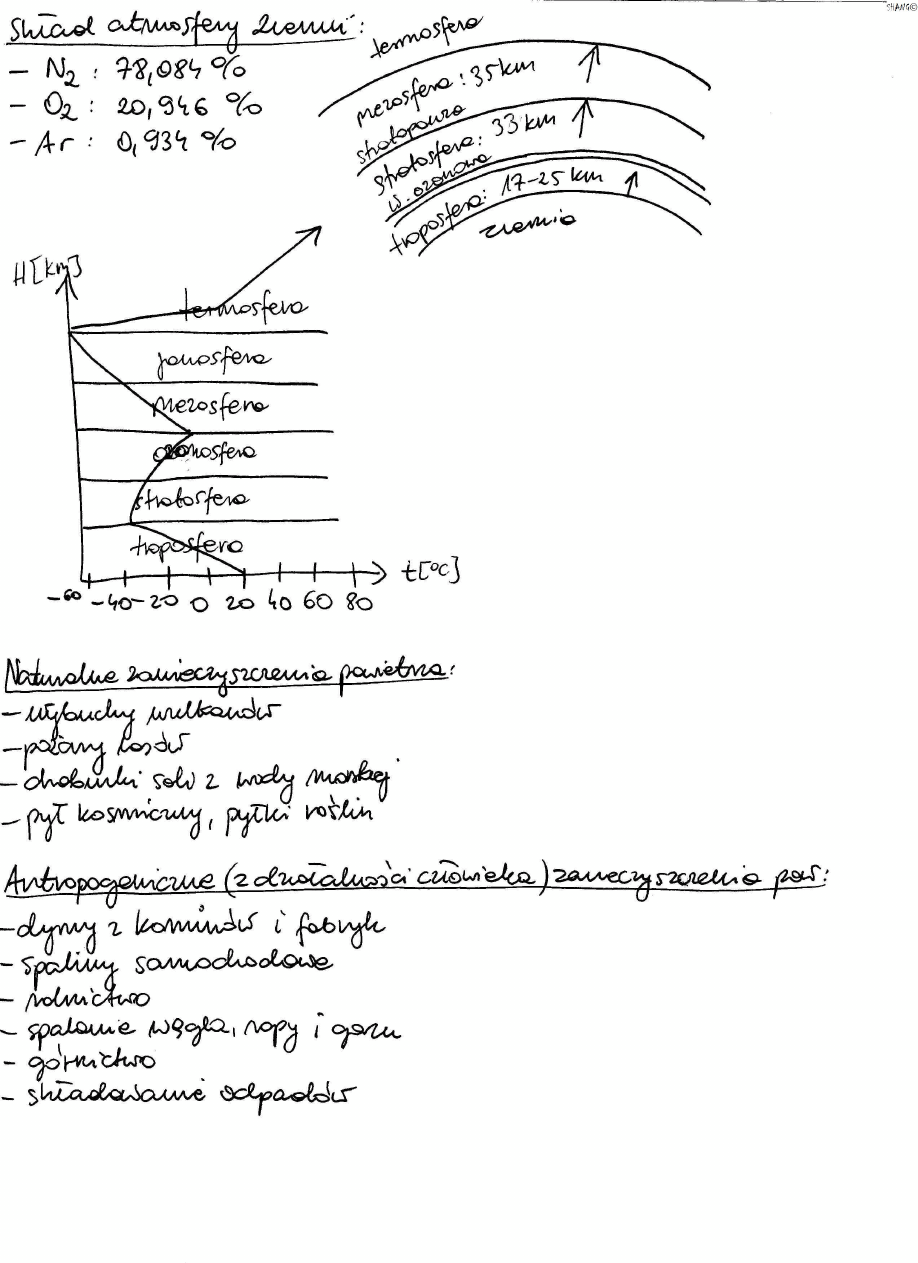 SHANG©
Skład atmosfery Ziemi:
- N2 : 78,084 %
- O2 : 20,946 %
- Ar : 0,934 %
termosfera
mezosfera : 35 km
stratopauza
stratosfera : 33 km
w. ozonowa
troposfera : 17-25 km
ziemia
H [km]
termosfera
jonosfera
mezosfera
ozonosfera
stratosfera
troposfera
t [°C]
-60 -40 -20 0 20 40 60 80
Naturalne zanieczyszczenia powietrza:
- wybuchy wulkanów
- pożary lasów
- drobinki soli z wody morskiej
- pył kosmiczny, pyłki roślin
Antropogeniczne (z działalności człowieka) zanieczyszczenia pow:
- dymy z kominów i fabryk
- spaliny samochodowe
- rolnictwo
- spalanie węgla, ropy i gazu
- górnictwo
- składowanie odpadów